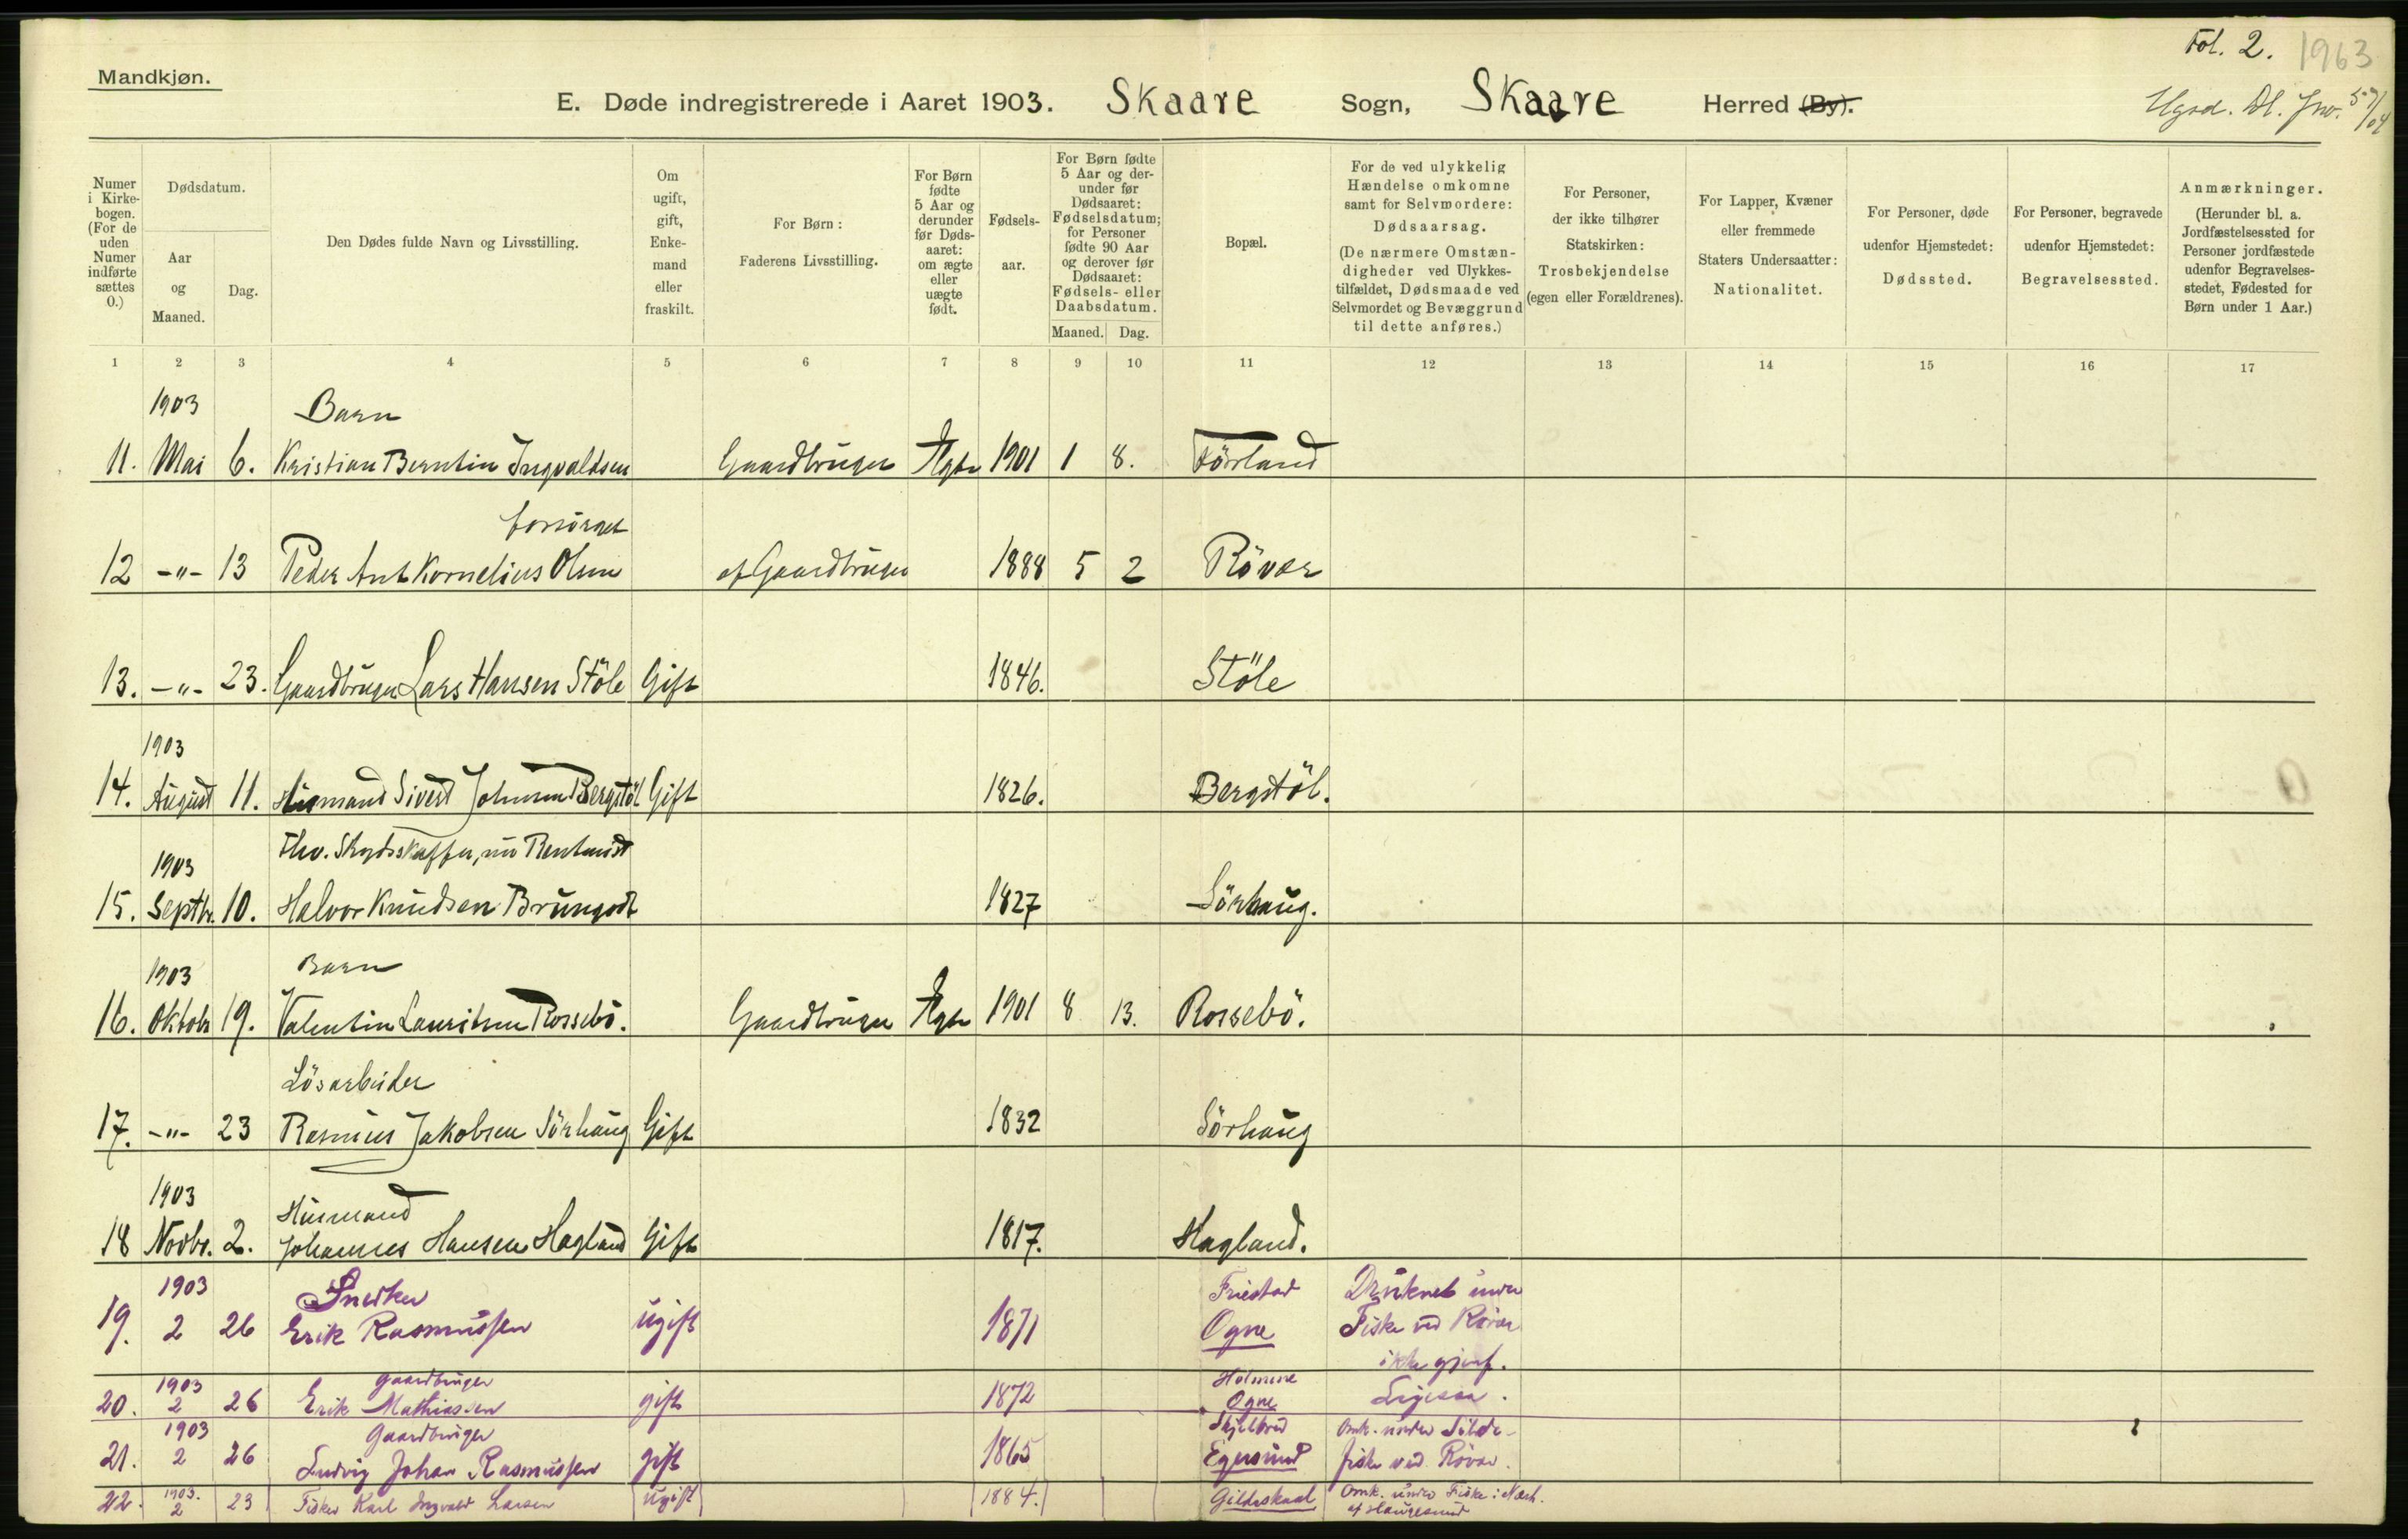 Mandkjøn.
Fol. 2. 1963
E. Døde indregistrerede i Aaret 1903. Skaare Sogn, Skaare Herred (By).
Numer i Kirke-bogen. (For de uden Numer indførte sættes 0.)
Dødsdatum.
Aar og Maaned.
Dag.
Den Dødes fulde Navn og Livsstilling.
Om ugift, gift, Enke-mand eller fraskilt.
For Børn: Faderens Livsstilling.
For Børn fødte 5 Aar og derunder før Døds-aaret: om ægte eller uægte født.
Fødsels-aar.
For Børn fødte 5 Aar og der-under før Dødsaaret: Fødselsdatum; for Personer fødte 90 Aar og derover før Dødsaaret: Fødsels- eller Daabsdatum.
Maaned. Dag.
Bopæl.
For de ved ulykkelig Hændelse omkomne samt for Selvmordere: Dødsaarsag. (De nærmere Omstæn-digheder ved Ulykkes-tilfældet, Dødsmaade ved Selvmordet og Bevæggrund til dette anføres.)
For Personer, der ikke tilhører Statskirken: Trosbekjendelse (egen eller Forældrenes).
For Lapper, Kvæner eller fremmede Staters Undersaatter: Nationalitet.
For Personer, døde udenfor Hjemstedet: Dødssted.
For Personer, begravede udenfor Hjemstedet: Begravelsessted.
Anmærkninger. (Herunder bl. a. Jordfæstelsessted for Personer jordfæstede udenfor Begravelses-stedet, Fødested for Børn under 1 Aar.)
1 2 3 4 5 6 7 8 9 10 11 12 13 14 15 16 17
1903 Barn
11. Mai 6. Kristian Berntin Ingvaldsen Gaardbruger Ægte 1901 1 8. Førland
forsörget
12 -"- 13 Peder Ant Kornelius Olsen af Gaardbruger 1888 5 2 Rövær
13. -"- 23. Gaardbruger Lars Hansen Stöle Gift 1846. Stöle
1903
14. August 11. Husmand Sivert Johnsen Bergstöl Gift 1826. Bergstöl.
1903 Fhv. Skydsskaffer, nu Rentenist
15. Septbr. 10. Halvor Knudsen Brungodt 1827 Sörhaug.
1903 Barn
16. Oktobr 19. Valentin Lauritsen Rossebö. Gaardbruger Ægte 1901 8 13. Rossebö.
Lösarbeider
17. -"- 23 Rasmus Jakobsen Sörhaug Gift 1832 Sörhaug
1903 Husmand
18 Novbr. 2. Johannes Hansen Hagland Gift 1817. Hagland.
1903 Snedker Friestad Druknet under
19. 2 26 Erik Rasmussen ugift 1871 Ogne Fiske ved Rövær
ikke gjenf.
1903 Gaardbruger Holmene
20. 2 26 Erik Mathiassen gift 1872 Ogne Ligesaa.
1903 Gaardbruger Skjelbred Omk. under Silde-
21. 2 26 Ludvig Johan Rasmussen gift 1865 Egersund fiske ved Rövær.
22. 1903. 2 23 Fisker Karl Ingvald Larsen Ugift 1884. Gildeskaal Omk. under Fiske i Nærh.
af Haugesund